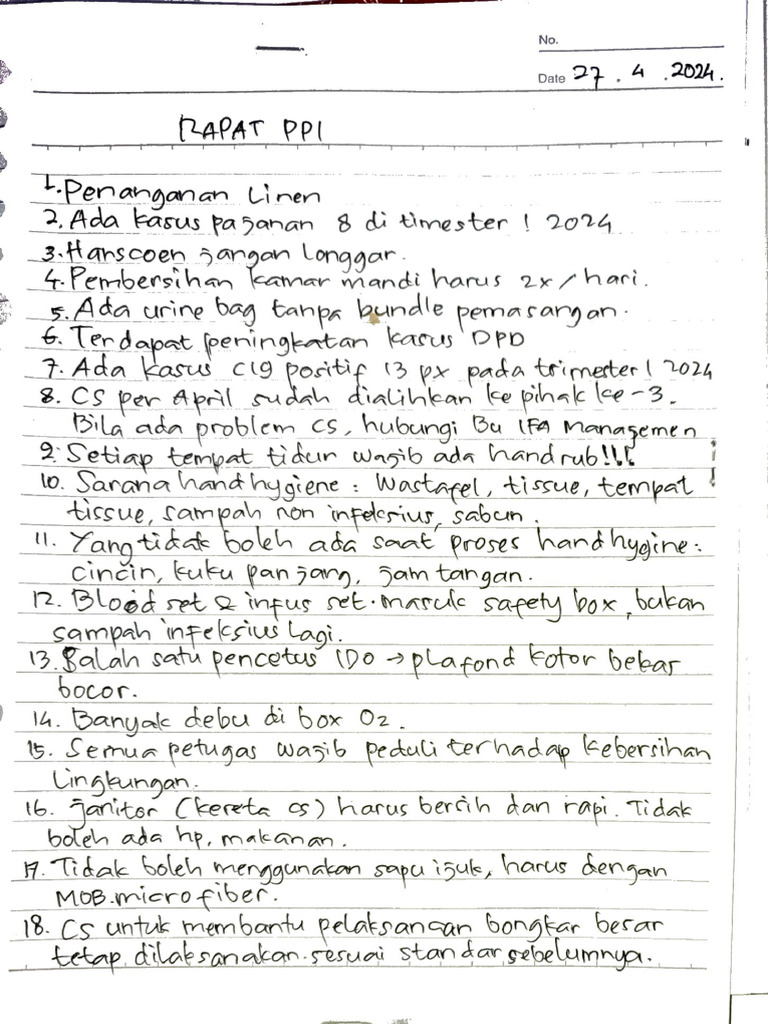 No.
Date 27 . 4 . 2024.
RAPAT PPI
1. Penanganan Linen
2. Ada kasus pajanan 8 di timester 1 2024
3. Hanscoen jangan longgar.
4. Pembersihan kamar mandi harus 2x/hari.
5. Ada urine bag tanpa bundle pemasangan.
6. Terdapat peningkatan kasus DPD
7. Ada kasus C19 positif 13 px pada trimester 1 2024
8. CS per April sudah dialihkan ke pihak ke-3.
Bila ada problem CS, hubungi Bu IFA Managemen
9. Setiap tempat tidur wajib ada handrub!!!
10. Sarana hand hygiene : Wastafel, tissue, tempat
tissue, sampah non infeksius, sabun.
11. Yang tidak boleh ada saat proses hand hygine :
cincin, kuku panjang, jam tangan.
12. Blood set & infus set. masuk safety box, bukan
sampah infeksius lagi.
13. Salah satu pencetus IDO → plafond kotor bekas
bocor.
14. Banyak debu di box O2.
15. Semua petugas wajib peduli terhadap kebersihan
Lingkungan.
16. Janitor (kereta cs) harus bersih dan rapi. Tidak
boleh ada hp, makanan.
17. Tidak boleh menggunakan sapu ijuk, harus dengan
MOB.microfiber.
18. CS untuk membantu pelaksanaan bongkar besar
tetap dilaksanakan.sesuai standar sebelumnya.